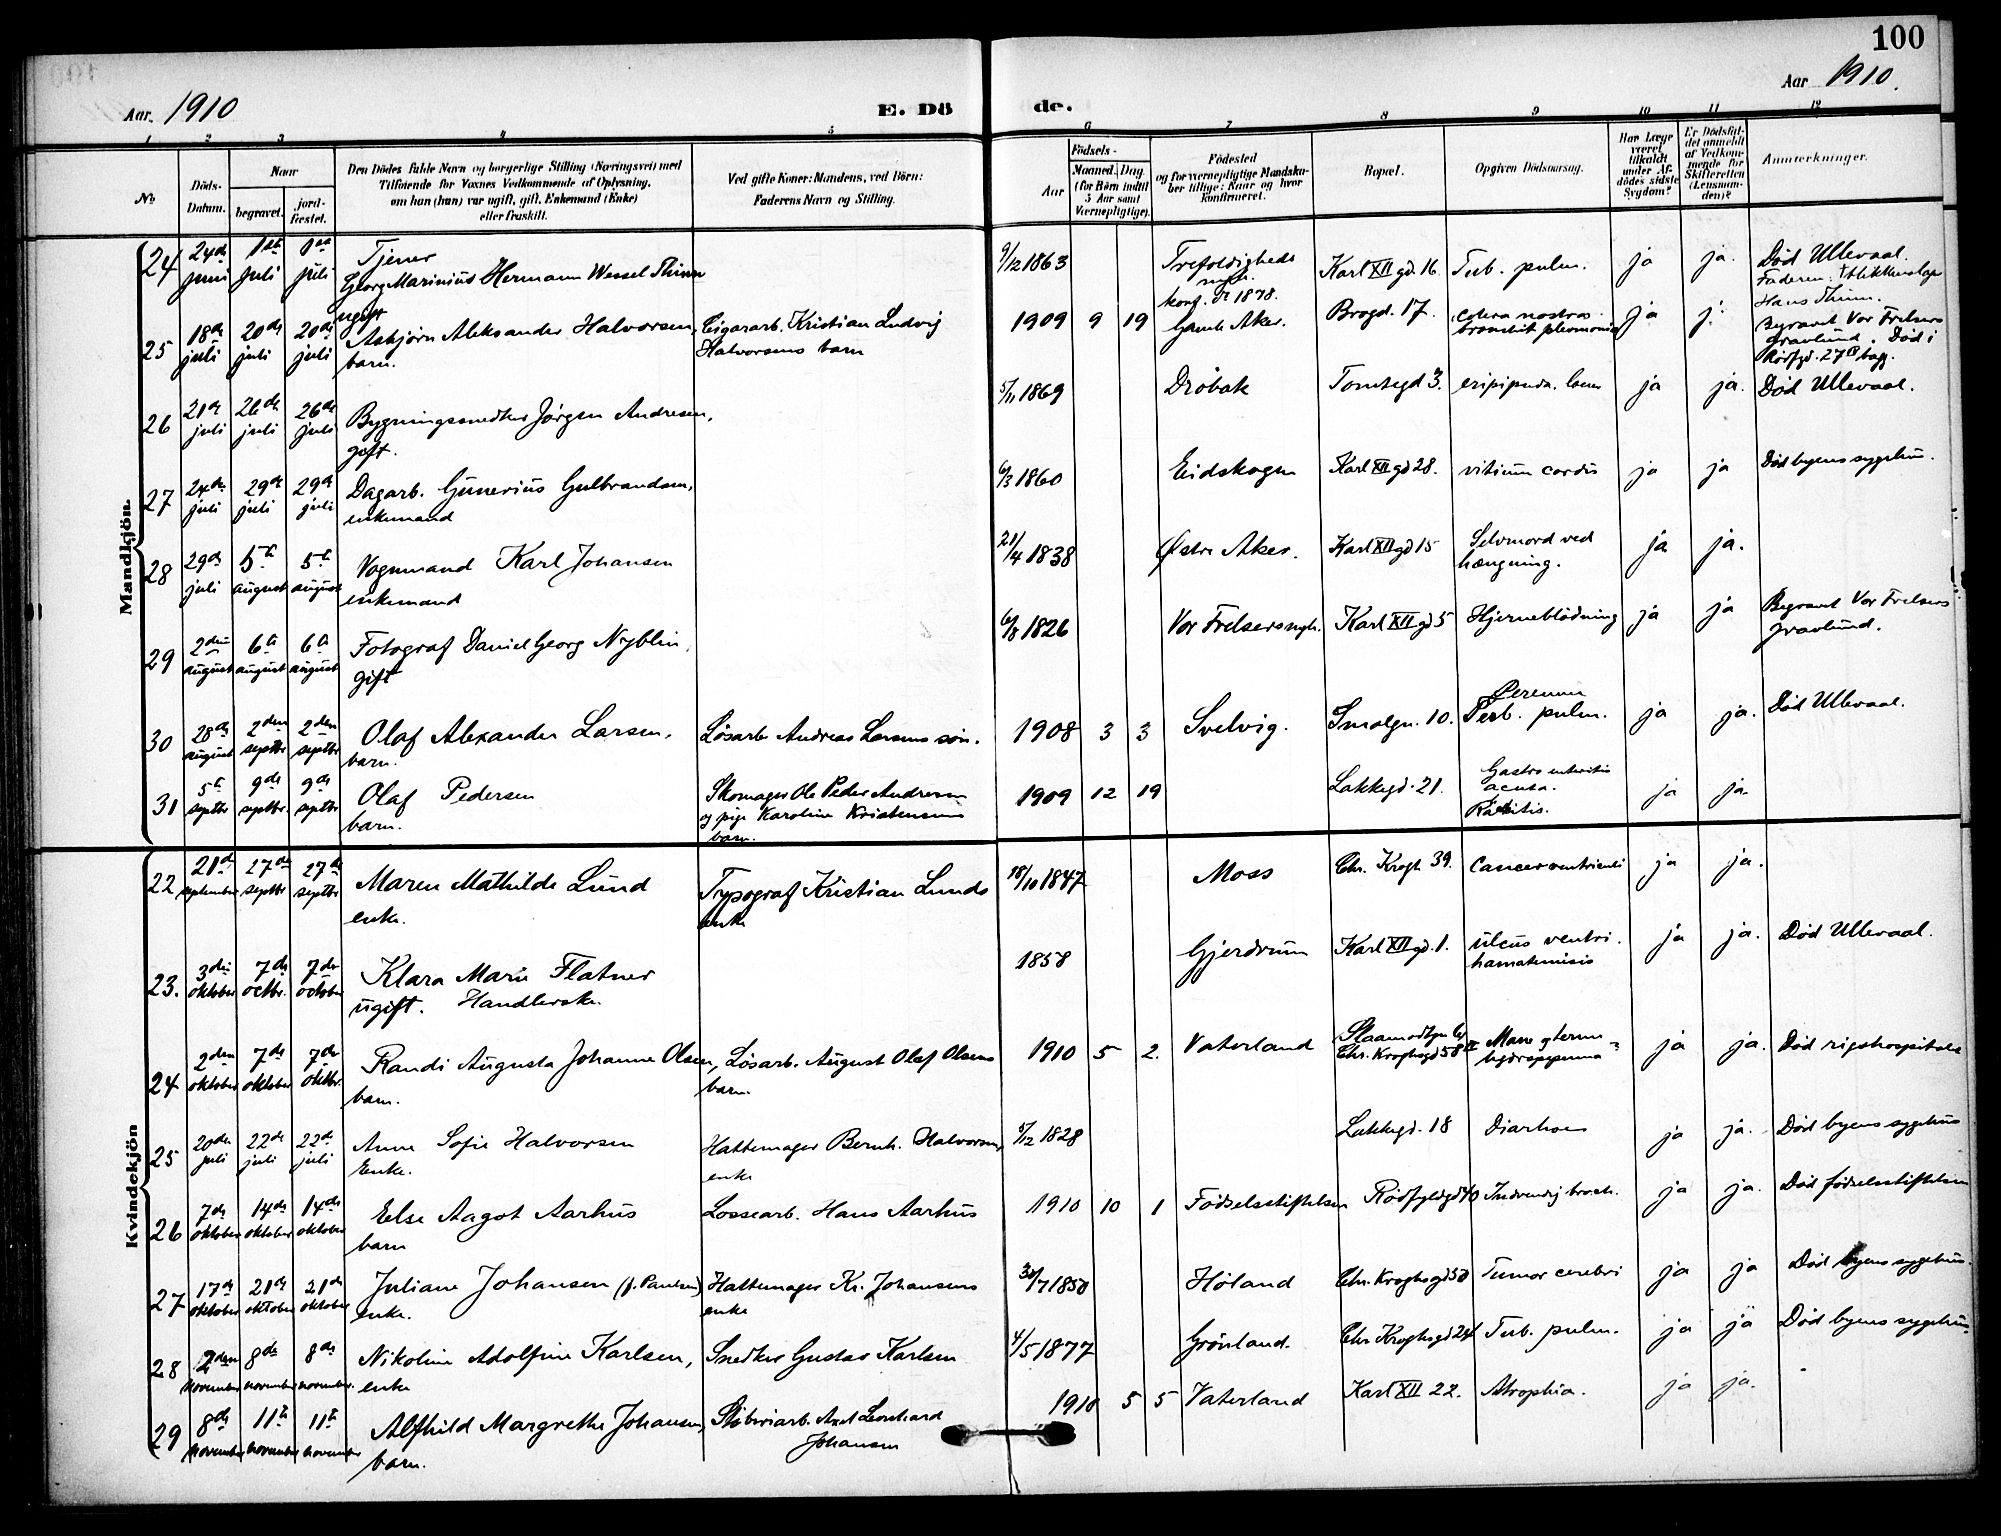 100
Aar 1910
E. Dö
de.
Aar 1910.
1 2 3 4 5 6 7 8 9 10 11 12
No
Döds-
Datum.
Naar
begravet.
jord-
fæstet.
Den Dödes fulde Navn og borgerlige Stilling (Næringsvei) med
Tilföiende for Voxnes Vedkommende af Oplysning,
om han (hun) var ugift, gift, Enkemand (Enke)
eller fraskilt.
Ved gifte Koner: Mandens, ved Börn:
Faderens Navn og Stilling.
Födsels-
Aar
Maaned. Dag
(for Börn indtil
5 Aar samt
Værnepligtige).
Födested
og for værnepligtige Mandska-
ber tillige: Naar og hvor
konfirmeret.
Bopæl.
Opgiven Dödsaarsag.
Har Læge
været
tilkaldt
under Af-
dödes sidste
Sygdom?
Er Dödsfal-
det anmeldt
af Vedkom-
mende for
Skifteretten
(Lensman-
den)?
Anmerkninger.
Mandkjön.
24 24de juni 1ste juli 1ste juli Tjener
Georg Marinius Hermann Wessel Thinn
ugift
9/12 1863 Trefoldigheds
mgh.
konf. 1878.
Karl XII gd. 16. Tub. pulm. ja ja. Död Ullevaal.
Faderen:
Hans Thinn.
25 18de juli 20de juli 20de juli Asbjörn Aleksander Halvorsen,
barn.
Cigararb. Kristian Ludvig
Halvorsens barn
1909 9 19 Gamle Aker. Brogd. 17. colera nostras
ja j.
Begravet Vor Frelsers
gravlund. Död i
Rödfgd. 27 bagg.
26 21de juli 26de juli 26de juli Bygningssnedker Jörgen Andresen,
gift.
5/11 1869 Dröbak Tomtegd 3. ja ja. Död Ullevaal.
27 24de juli 29de juli 29de juli Dagarb. Gunerius Gulbrandsen,
enkemand
6/3 1860 Eidskogen Karl XII gd 28. vitium cordis ja ja Död byens sygehus.
28 29de juli 5te august 5te august Vognmand Karl Johansen
enkemand
21/4 1838 Östre Aker. Karl XII gd 15 Selvmord ved
hængning.
ja ja.
29 2den august 6te august 6te august Fotograf Daniel Georg Nyblin,
gift
6/8 1826 Vor Frelsers mgh. Karl XII gd 5 Hjerneblödning ja ja Begravet Vor Frelsers
gravlund.
30 28de august 2den septbr 2den septbr Olaf Alexander Larsen,
barn.
Lösarb Andreas Larsens sön.
1908 3 3 Svelvig. Smalgn. 10. pulm. ja ja. Död Ullevaal.
31 5te septbr 9de septbr. 9de septbr Olaf Pedersen
barn.
Skomager Ole Peder Andresen
og pige Karoline Kristensens
barn.
1909 12 19 Lakkegd. 21. Gastro enteritis
acuta.
Rakitis.
ja ja.
Kvindekjön
22 21de september 27de septbr 27de septbr Maren Mathilde Lund
enke.
Typograf Kristian Lunds
enke
18/10 1847 Moss Chr. Krogh 39. Cancer ventriculi ja ja.
23. 3die oktober 7de octbr. 7de october Klara Marie Flatner
ugift. Handlerske.
1858 Gjerdrum Karl XII gd. 1. ulcus ventri.
hæmatemisis
ja ja. Död Ullevaal.
24 2den oktober 7de oktober 7de oktbr. Randi Augusta Johanne Olsen,
barn.
Lösarb. August Olaf Olsens
barn.
1910 5 2. Vaterland
Chr. Kroghsgd 58
ja ja. Död rigshospitalet
25 20de juli 22de juli 22de juli Anne Sofie Halvorsen
Enke.
Hattemager Bernh. Halvorsens
enke
5/12 1828 Lakkegd. 18 Diarhoe ja ja. Död byens sygehus
26 7de oktober 14de oktober 14de oktober Else Aagot Aarhus
barn
Lossearb. Hans Aarhus
1910 10 1 Födselsstiftelsen Rödfyldgd 40 Indvendig ja ja. Död födselsstiftelsen
27 17de oktober 21de oktober 21de oktober Juliane Johansen (f. Paulsen)
enke.
Hattemager Kr. Johansens
enke
30/7 1850 Höland Chr. Kroghsgd 50 Tumor cerebri ja ja Död byens sygehus.
28 2den november 8de november 8de november. Nikoline Adolfine Karlsen,
enke
Snedker Gustav Karlsen
4/5 1877 Grönland. Chr Kroghsgd 24 Tub. pulm. ja ja Död byens sygehus.
29 8de november 11te november 11te november Alfhild Margrethe Johansen,
barn.
Stöberiarb. Axel Leonhard
Johansen
1910 5 5 Vaterland Karl XII 22. Atrophia. ja ja.